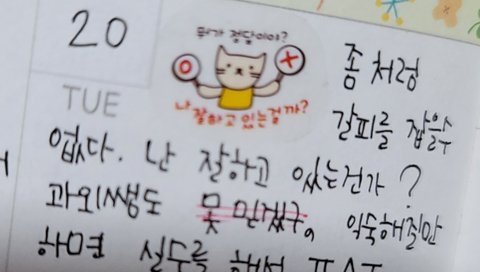 20
TUE
뭐가 정답이야?
O X
나 잘하고 있는걸까?
좀처럼
갈피를 잡을수
없다. 난 잘하고 있는건가?
과외쌤도 못 믿겠구。 익숙해질만
하면 실수를 해서